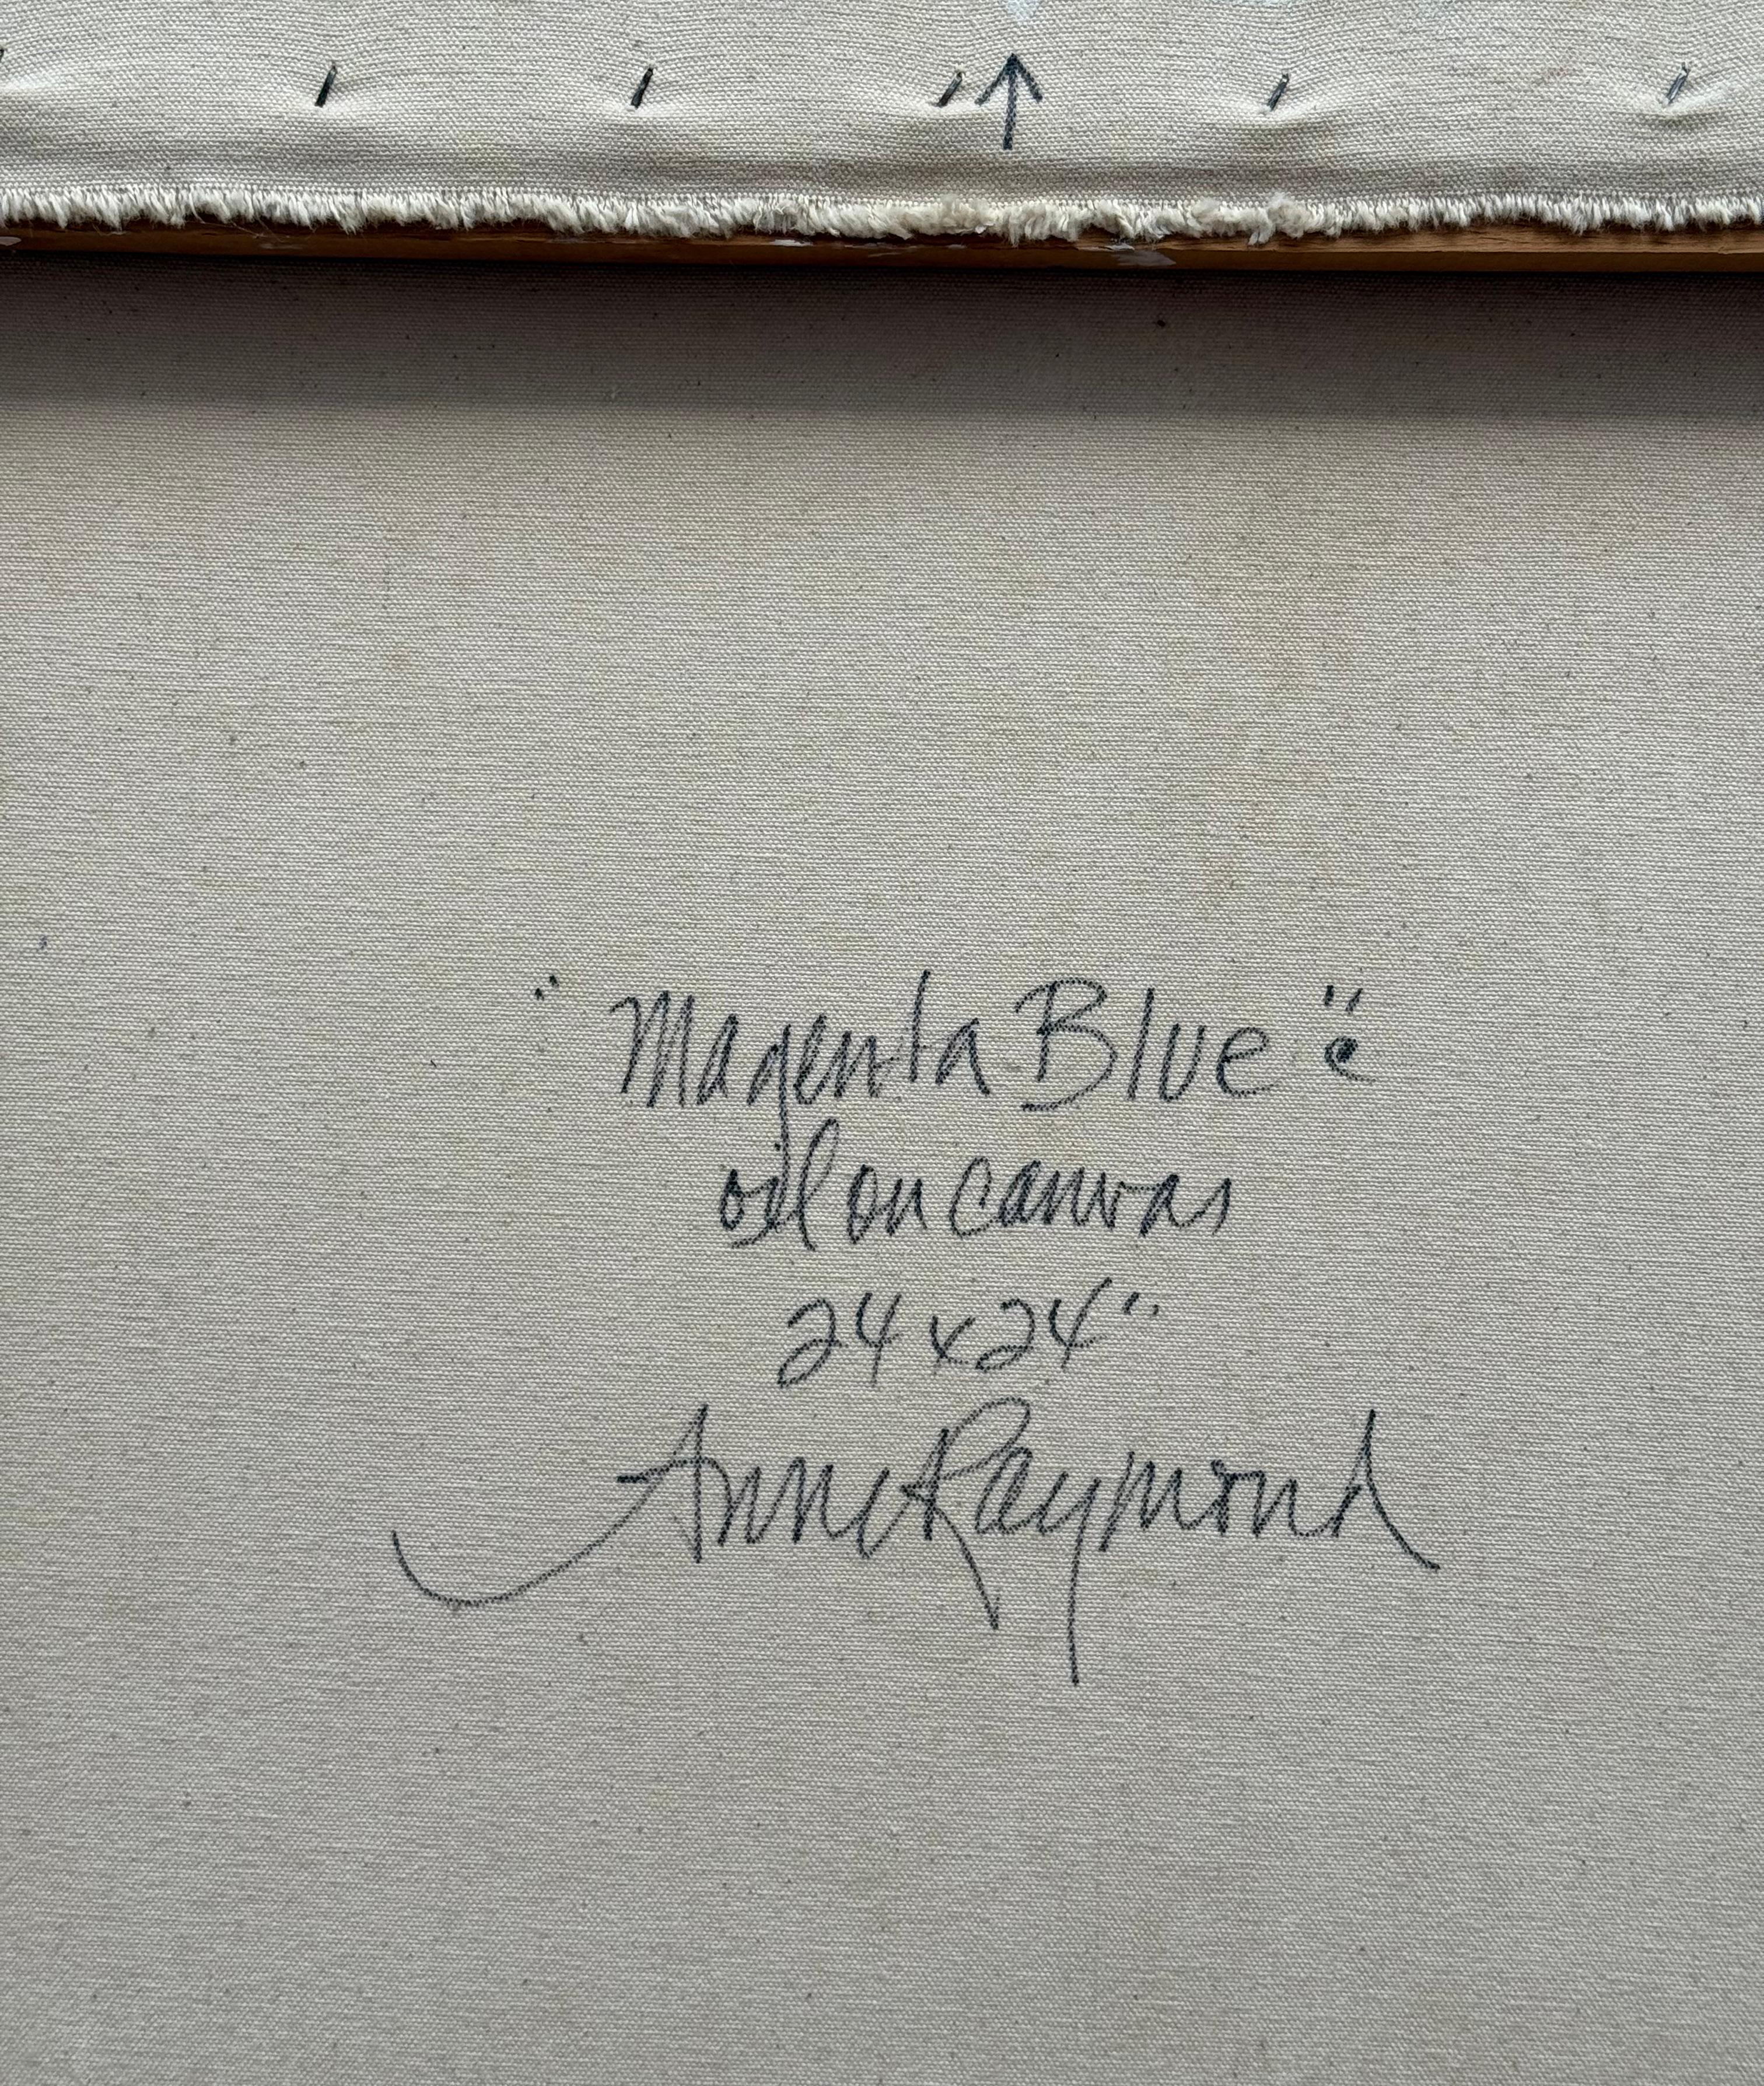 ↑
"Magenta Blue" ©
oil on canvas
24 x 24"
Anne Raymond